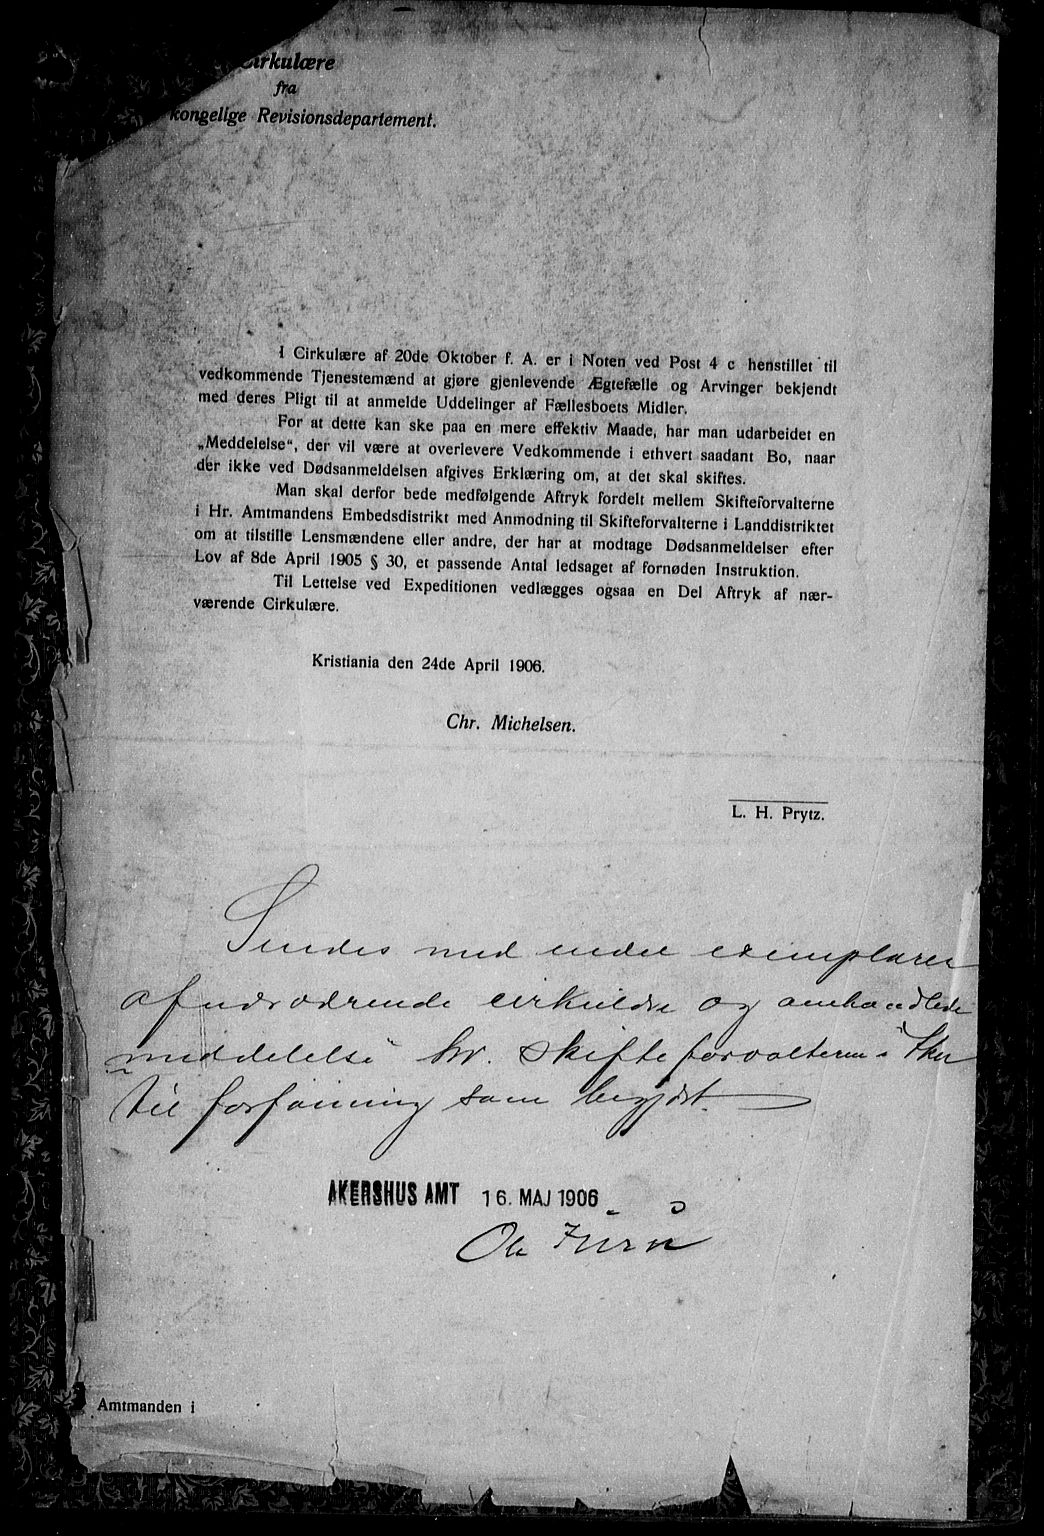 Cirkulære
fra
kongelige Revisionsdepartement.
I Cirkulære af 20de Oktober f. A. er i Noten ved Post 4 c henstillet til
vedkommende Tjenestemænd at gjøre gjenlevende Ægtefælle og Arvinger bekjendt
med deres Pligt til at anmelde Uddelinger af Fællesboets Midler.
For at dette kan ske paa en mere effektiv Maade, har man udarbeidet en
„Meddelelse“, der vil være at overlevere Vedkommende i ethvert saadant Bo, naar
der ikke ved Dødsanmeldelsen afgives Erklæring om, at det skal skiftes.
Man skal derfor bede medfølgende Aftryk fordelt mellem Skifteforvalterne
i Hr. Amtmandens Embedsdistrikt med Anmodning til Skifteforvalterne i Landdistriktet
om at tilstille Lensmændene eller andre, der har at modtage Dødsanmeldelser efter
Lov af 8de April 1905 § 30, et passende Antal ledsaget af fornøden Instruktion.
Til Lettelse ved Expeditionen vedlægges ogsaa en Del Aftryk af nær-
værende Cirkulære.
Kristiania den 24de April 1906.
Chr. Michelsen.
L. H. Prytz.
Sendes med endel exemplarer
af nærværende cirkulære og omhandlede
meddelelse hr. skifteforvalteren i Aker
til forføining som begjært.
AKERSHUS AMT 16. MAJ 1906
Ole
Amtmanden i